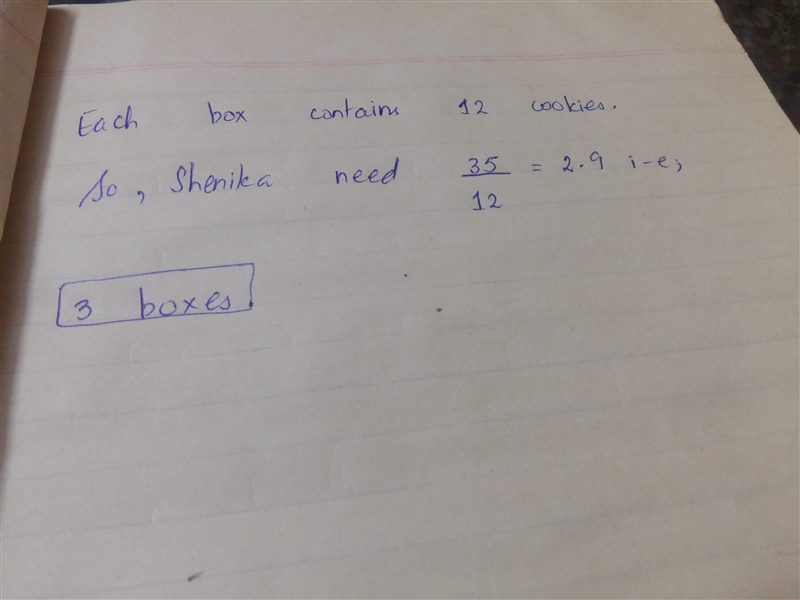 Each box contains 12 cookies.
So, Shenika need 35/12 = 2.9 i-e;
3 boxes